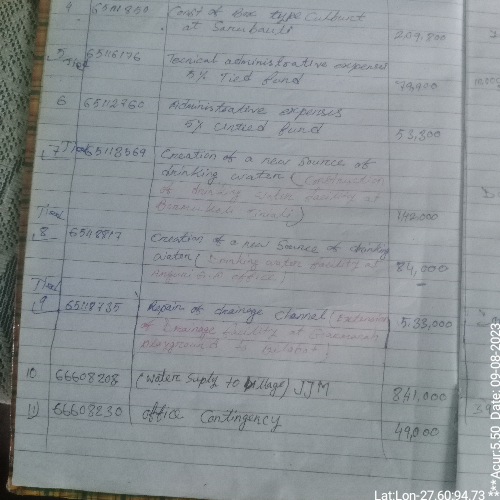 4 65111950 Const of Box type Culbart
at Sirubauti 209,800
5 Tied 65116176 Tecnical administrative expenses
5% Tied fund 79,900
6 65112760 Administrative expenses
5% Untied fund 53,300
7 Tied 65118569 Creation of a new Source of
drinking water (Construction
of drinking water facility at
142,000
Tied
8 65118817 Creation of a new Source of drinking
water (Drinking water facility at
office) 84,000
Tied
9 65118735 Repair of drainage channel (Extension
of Drainage facility at
playground to 5,33,000
10 66608208 (Water Suply to village) JJM 841,000
11) 66608230 office Contingency 49,000
Lat:Lon-27.60:94.73
**Acur:5.50 Date: 09-08-2023